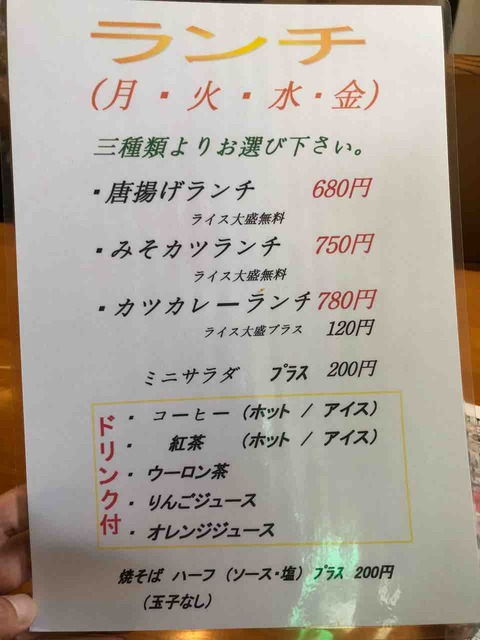 ランチ
(月・火・水・金)
三種類よりお選び下さい。
・唐揚げランチ 680円
ライス大盛無料
・みそカツランチ 750円
ライス大盛無料
・カツカレーランチ 780円
ライス大盛プラス 120円
ミニサラダ プラス 200円
ドリンク付
・コーヒー (ホット / アイス)
・紅茶 (ホット / アイス)
・ウーロン茶
・りんごジュース
・オレンジジュース
焼そば ハーフ (ソース・塩) プラス 200円
(玉子なし)